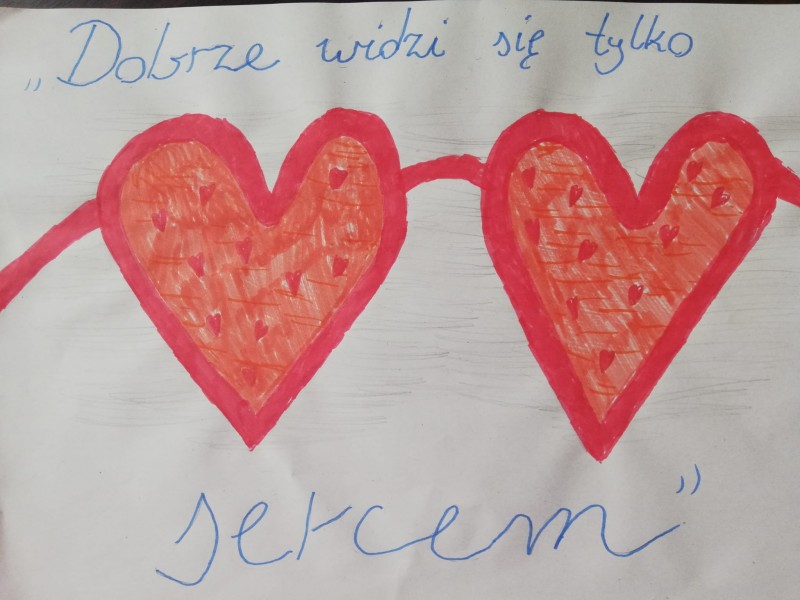 „Dobrze widzi się tylko
sercem”